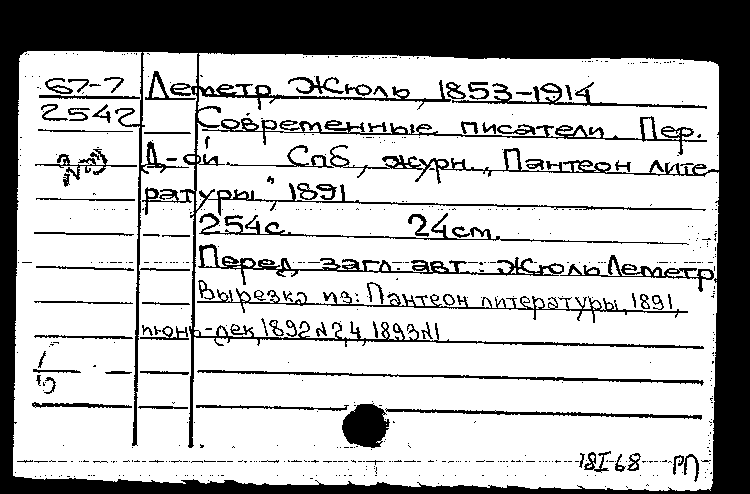 67-7 Леметр, Жюль, 1853-1914
2542 Современные писатели. Пер.
Д-ой. Спб., журн. „Пантеон лите-
ратуры“, 1891.
254с. 24см.
Перед загл. авт.: Жюль Леметр
Вырезка из: Пантеон литературы, 1891,
июнь-дек, 1892 №2,4, 1893 №1.
18I68 РП